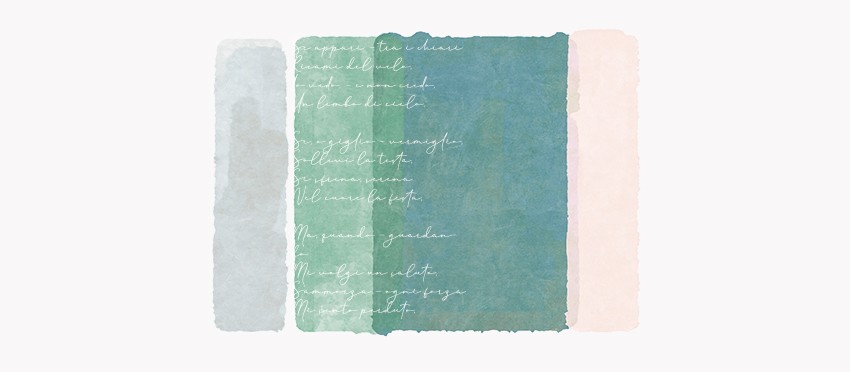 Se appari - tra i chiari
Ricami del velo,
Io vedo - e non credo,
Un limbo di cielo.
Se, o giglio - vermiglio,
Sollevi la testa,
Si sfrena, serena
Nel cuore la festa.
Ma, quando - guardan-
do
Mi volgi un saluto,
Sammorza - ogni forza
Mi sento perduto.